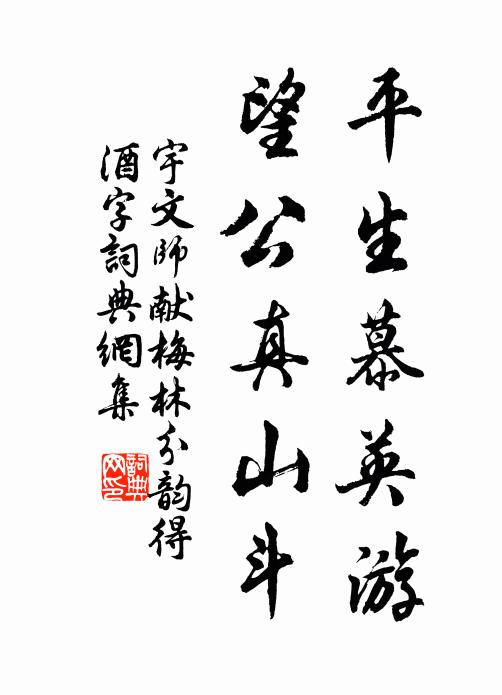 平生慕英游
望公真山斗
宇文师献梅林分韵得
酒字詞典網集
詞典网印